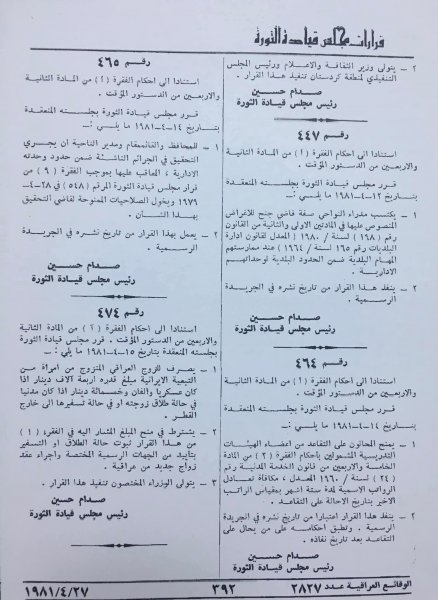 قرارات مجلس قيادة الثورة
٢ – يتولى وزير الثقافة والاعلام ورئيس المجلس
التنفيذي لمنطقة كردستان تنفيذ هذا القرار .
صدام حسين
رئيس مجلس قيادة الثورة
رقم ٤٤٧
استنادا الى احكام الفقرة (أ) من المادة الثانية
والاربعين من الدستور المؤقت .
قرر مجلس قيادة الثورة بجلسته المنعقدة
بتاريخ ١٢–٤–١٩٨١ ما يلي :–
١ – يكتسب مدراء النواحي صفة قاضي جنح للاغراض
المنصوص عليها في المادتين الاولى والثانية من القانون
رقم (١٦٨) لسنة / ١٩٨٠ المعدل لقانون ادارة
البلديات رقم ١٦٥ لسنة / ١٩٦٤ عند ممارستهم
المهام البلدية ضمن الحدود البلدية لوحداتهم
الادارية .
٢ – ينفذ هذا القرار من تاريخ نشره في الجريدة
الرسمية .
صدام حسين
رئيس مجلس قيادة الثورة
رقم ٤٦٤
استنادا الى احكام الفقرة (أ) من المادة الثانية
والاربعين من الدستور المؤقت .
قرر مجلس قيادة الثورة بجلسته المنعقدة
بتاريخ ١٤–٤–١٩٨١ ما يلي :–
١ – يمنح المحالون على التقاعد من اعضاء الهيئات
التدريسية المشمولين بأحكام الفقرة (٢) من المادة
الخامسة والاربعين من قانون الخدمة المدنية رقم
(٢٤) لسنة / ١٩٦٠ المعدل ، مكافأة تعادل
الرواتب الاسمية لمدة ستة اشهر بمقياس الراتب
الاخير بتاريخ الاحالة على التقاعد .
٢ – ينفذ هذا القرار اعتبارا من تاريخ نشره في الجريدة
الرسمية . وتطبق احكامه على من يحال على
التقاعد بعد تاريخ نفاذه .
صدام حسين
رئيس مجلس قيادة الثورة
رقم ٤٦٥
استنادا الى احكام الفقرة (أ) من المادة الثانية
والاربعين من الدستور المؤقت .
قرر مجلس قيادة الثورة بجلسته المنعقدة
بتاريخ ١٤–٤–١٩٨١ ما يلي :–
١ – للمحافظ والقائممقام ومدير الناحية ان يجري
التحقيق في الجرائم الناشئة ضمن حدود وحدته
الادارية ، المعاقب عليها بموجب الفقرة (٦) من
قرار مجلس قيادة الثورة المرقم (٥٤٨) في ٢٨–٤–
١٩٧٩ ويخول الصلاحيات الممنوحة لقاضي التحقيق
بهذا الشأن .
٢ – يعمل بهذا القرار من تاريخ نشره في الجريدة
الرسمية .
صدام حسين
رئيس مجلس قيادة الثورة
رقم ٤٧٤
استنادا الى احكام الفقرة (أ) من المادة الثانية
والاربعين من الدستور المؤقت . قرر مجلس قيادة الثورة
بجلسته المنعقدة بتاريخ ١٥–٤–١٩٨١ ما يلي :–
١ – يصرف للزوج العراقي المتزوج من امرأة من
التبعية الايرانية مبلغ قدره اربعة الاف دينار اذا
كان عسكريا والفان وخمسمائة دينار اذا كان مدنيا
في حالة طلاق زوجته او في حالة تسفيرها الى خارج
القطر .
٢ – يشترط في منح المبلغ المشار اليه في الفقرة (١)
من هذا القرار ثبوت حالة الطلاق او التسفير
بتأييد من الجهات الرسمية المختصة واجراء عقد
زواج جديد من عراقية .
٣ – يتولى الوزراء المختصون تنفيذ هذا القرار .
صدام حسين
رئيس مجلس قيادة الثورة
الوقائع العراقية عدد ٢٨٢٧
٣٩٢
١٩٨١/٤/٢٧